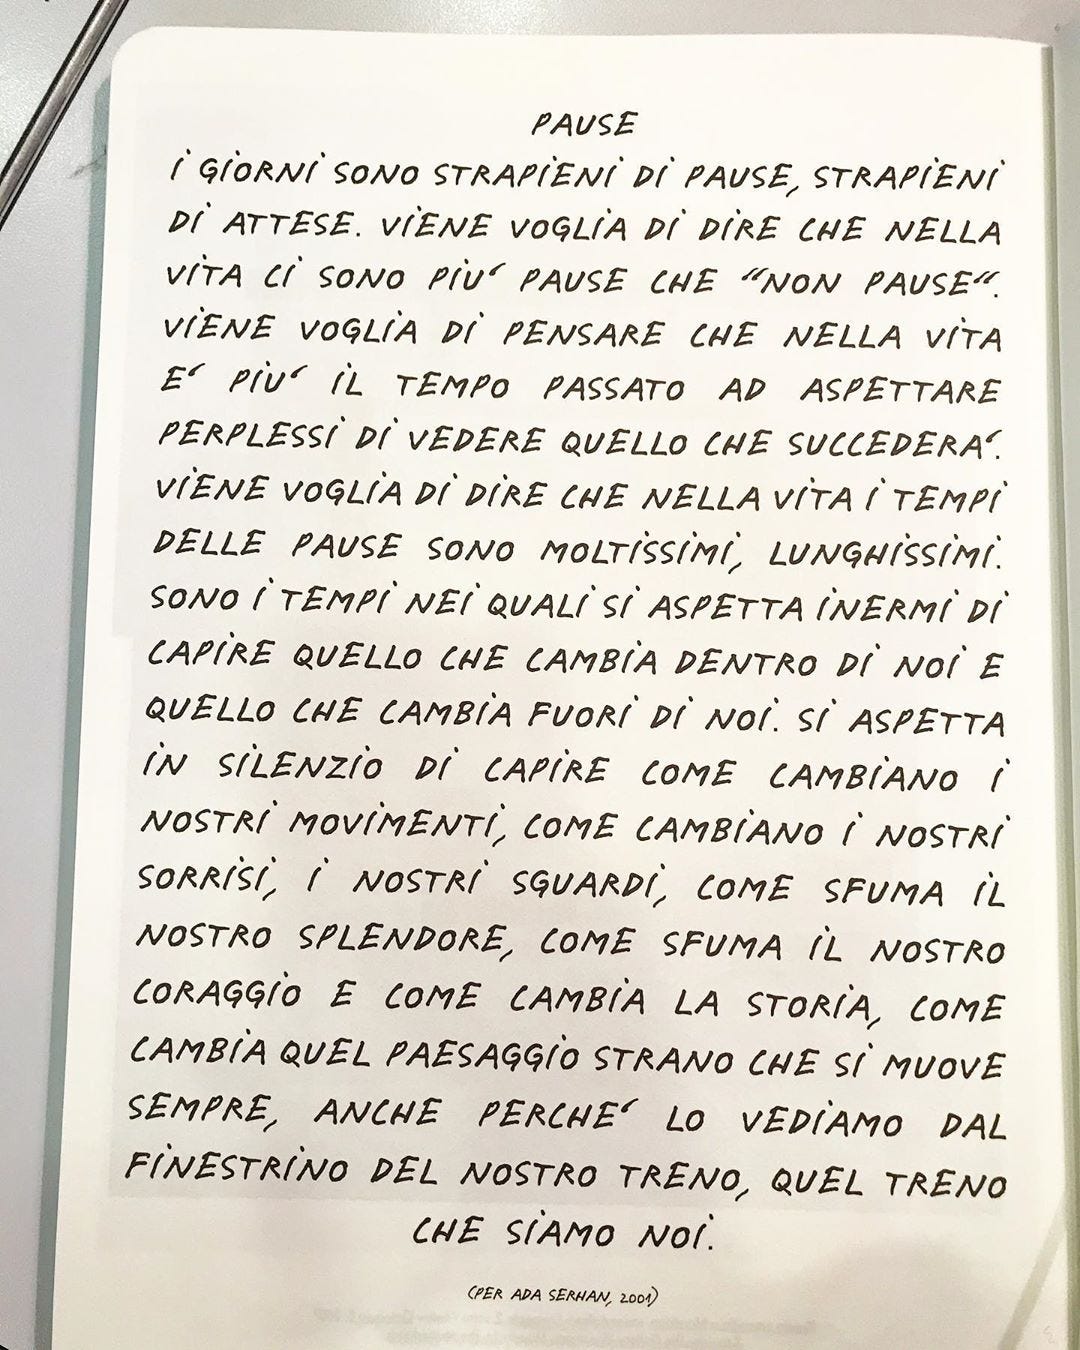 PAUSE
I GIORNI SONO STRAPIENI DI PAUSE, STRAPIENI
DI ATTESE. VIENE VOGLIA DI DIRE CHE NELLA
VITA CI SONO PIU‘ PAUSE CHE “NON PAUSE“.
VIENE VOGLIA DI PENSARE CHE NELLA VITA
E‘ PIU‘ IL TEMPO PASSATO AD ASPETTARE
PERPLESSI DI VEDERE QUELLO CHE SUCCEDERA‘.
VIENE VOGLIA DI DIRE CHE NELLA VITA I TEMPI
DELLE PAUSE SONO MOLTISSIMI, LUNGHISSIMI.
SONO I TEMPI NEI QUALI SI ASPETTA INERMI DI
CAPIRE QUELLO CHE CAMBIA DENTRO DI NOI E
QUELLO CHE CAMBIA FUORI DI NOI. SI ASPETTA
IN SILENZIO DI CAPIRE COME CAMBIANO I
NOSTRI MOVIMENTI, COME CAMBIANO I NOSTRI
SORRISI, I NOSTRI SGUARDI, COME SFUMA IL
NOSTRO SPLENDORE, COME SFUMA IL NOSTRO
CORAGGIO E COME CAMBIA LA STORIA, COME
CAMBIA QUEL PAESAGGIO STRANO CHE SI MUOVE
SEMPRE, ANCHE PERCHE‘ LO VEDIAMO DAL
FINESTRINO DEL NOSTRO TRENO, QUEL TRENO
CHE SIAMO NOI.
(PER ADA SERHAN, 2001)